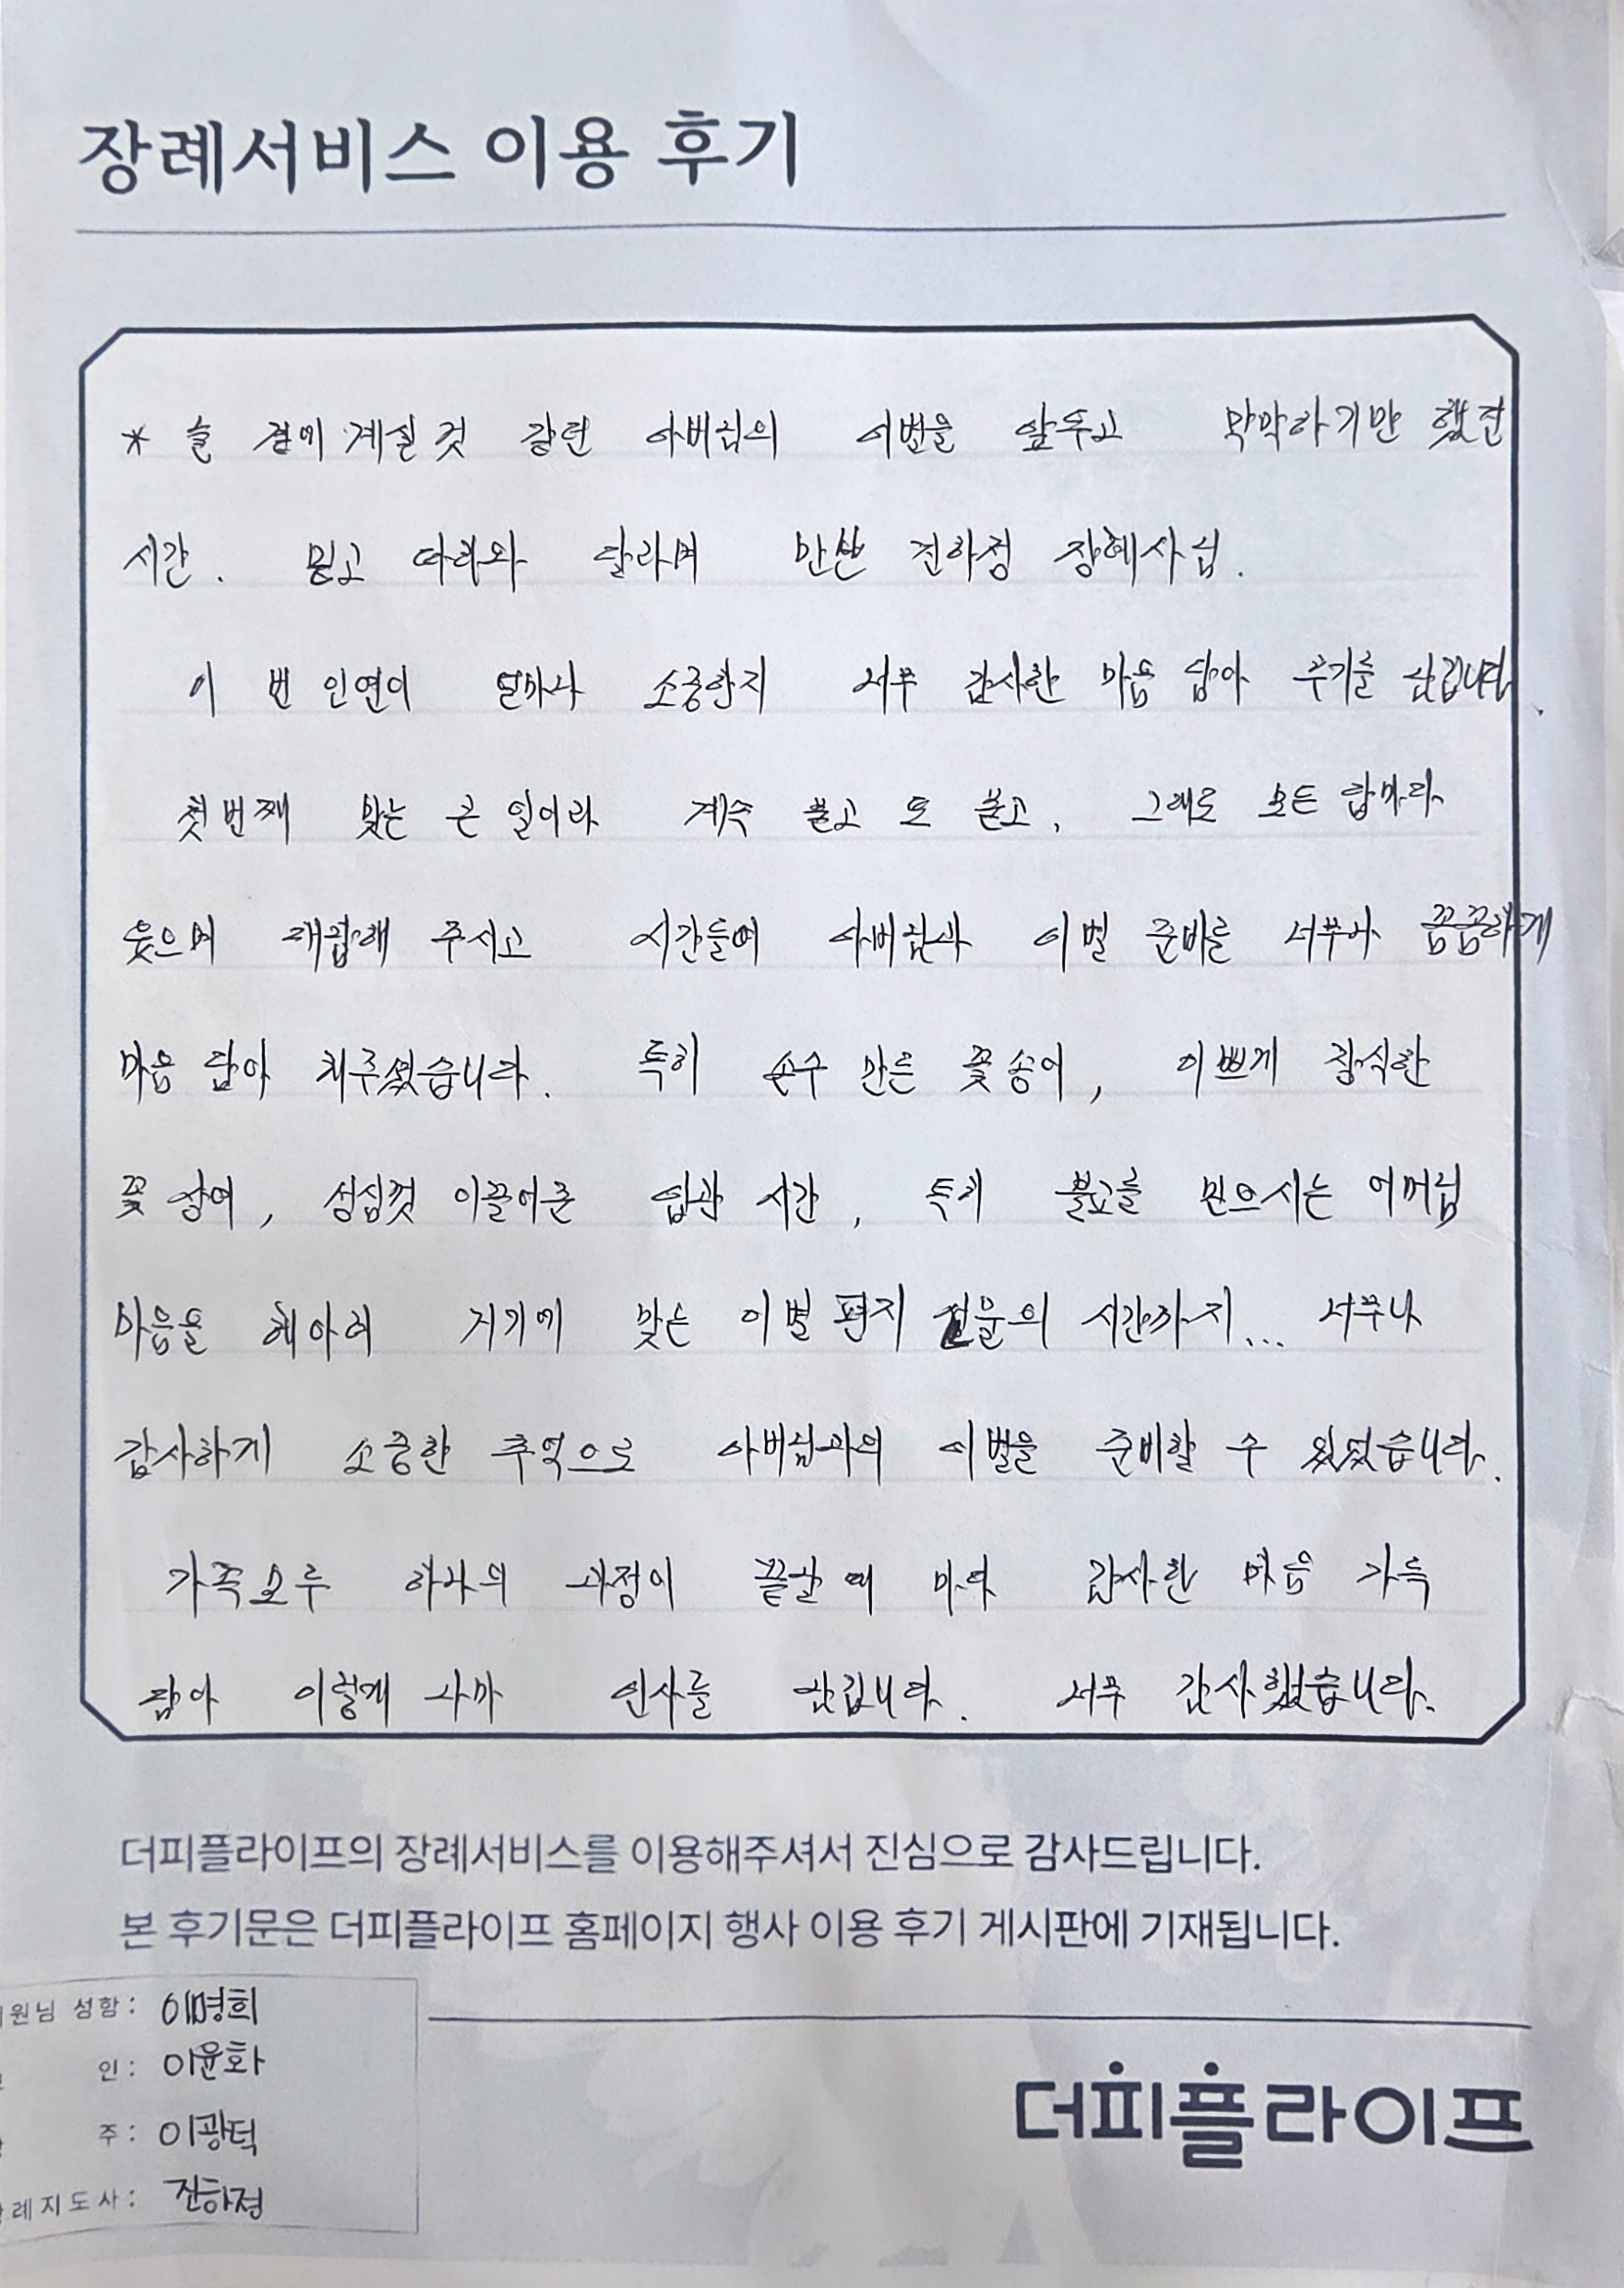 장례서비스 이용 후기
* 늘 곁에 계실 것 같던 아버님의 이별을 앞두고 막막하기만 했던
시간. 믿고 따라와 달라며 만난 진하정 장례사님.
이 번 인연이 얼마나 소중한지 너무 감사한 마음 담아 후기를 남깁니다.
첫번째 맞는 큰 일이라 계속 묻고 또 묻고, 그래도 모든 답마다
웃으며 대답해 주시고 시간들여 아버님과 이별 준비를 너무나 꼼꼼하게
마음 담아 해주셨습니다. 특히 손수 만든 꽃송이, 이쁘게 장식한
꽃 상여, 성심껏 이끌어준 입관 시간, 특히 불교를 믿으시는 어머님
마음을 헤아려 거기에 맞는 이별 편지 낭독의 시간까지... 너무나
감사하게 소중한 추억으로 아버님과의 이별을 준비할 수 있었습니다.
가족모두 하나의 과정이 끝날 때 마다 감사한 마음 가득
담아 이렇게 나마 인사를 남깁니다. 너무 감사했습니다.
더피플라이프의 장례서비스를 이용해주셔서 진심으로 감사드립니다.
본 후기문은 더피플라이프 홈페이지 행사 이용 후기 게시판에 기재됩니다.
원님 성함: 이명희
인: 이윤화
주: 이광덕
례지도사: 진하정
더피플라이프